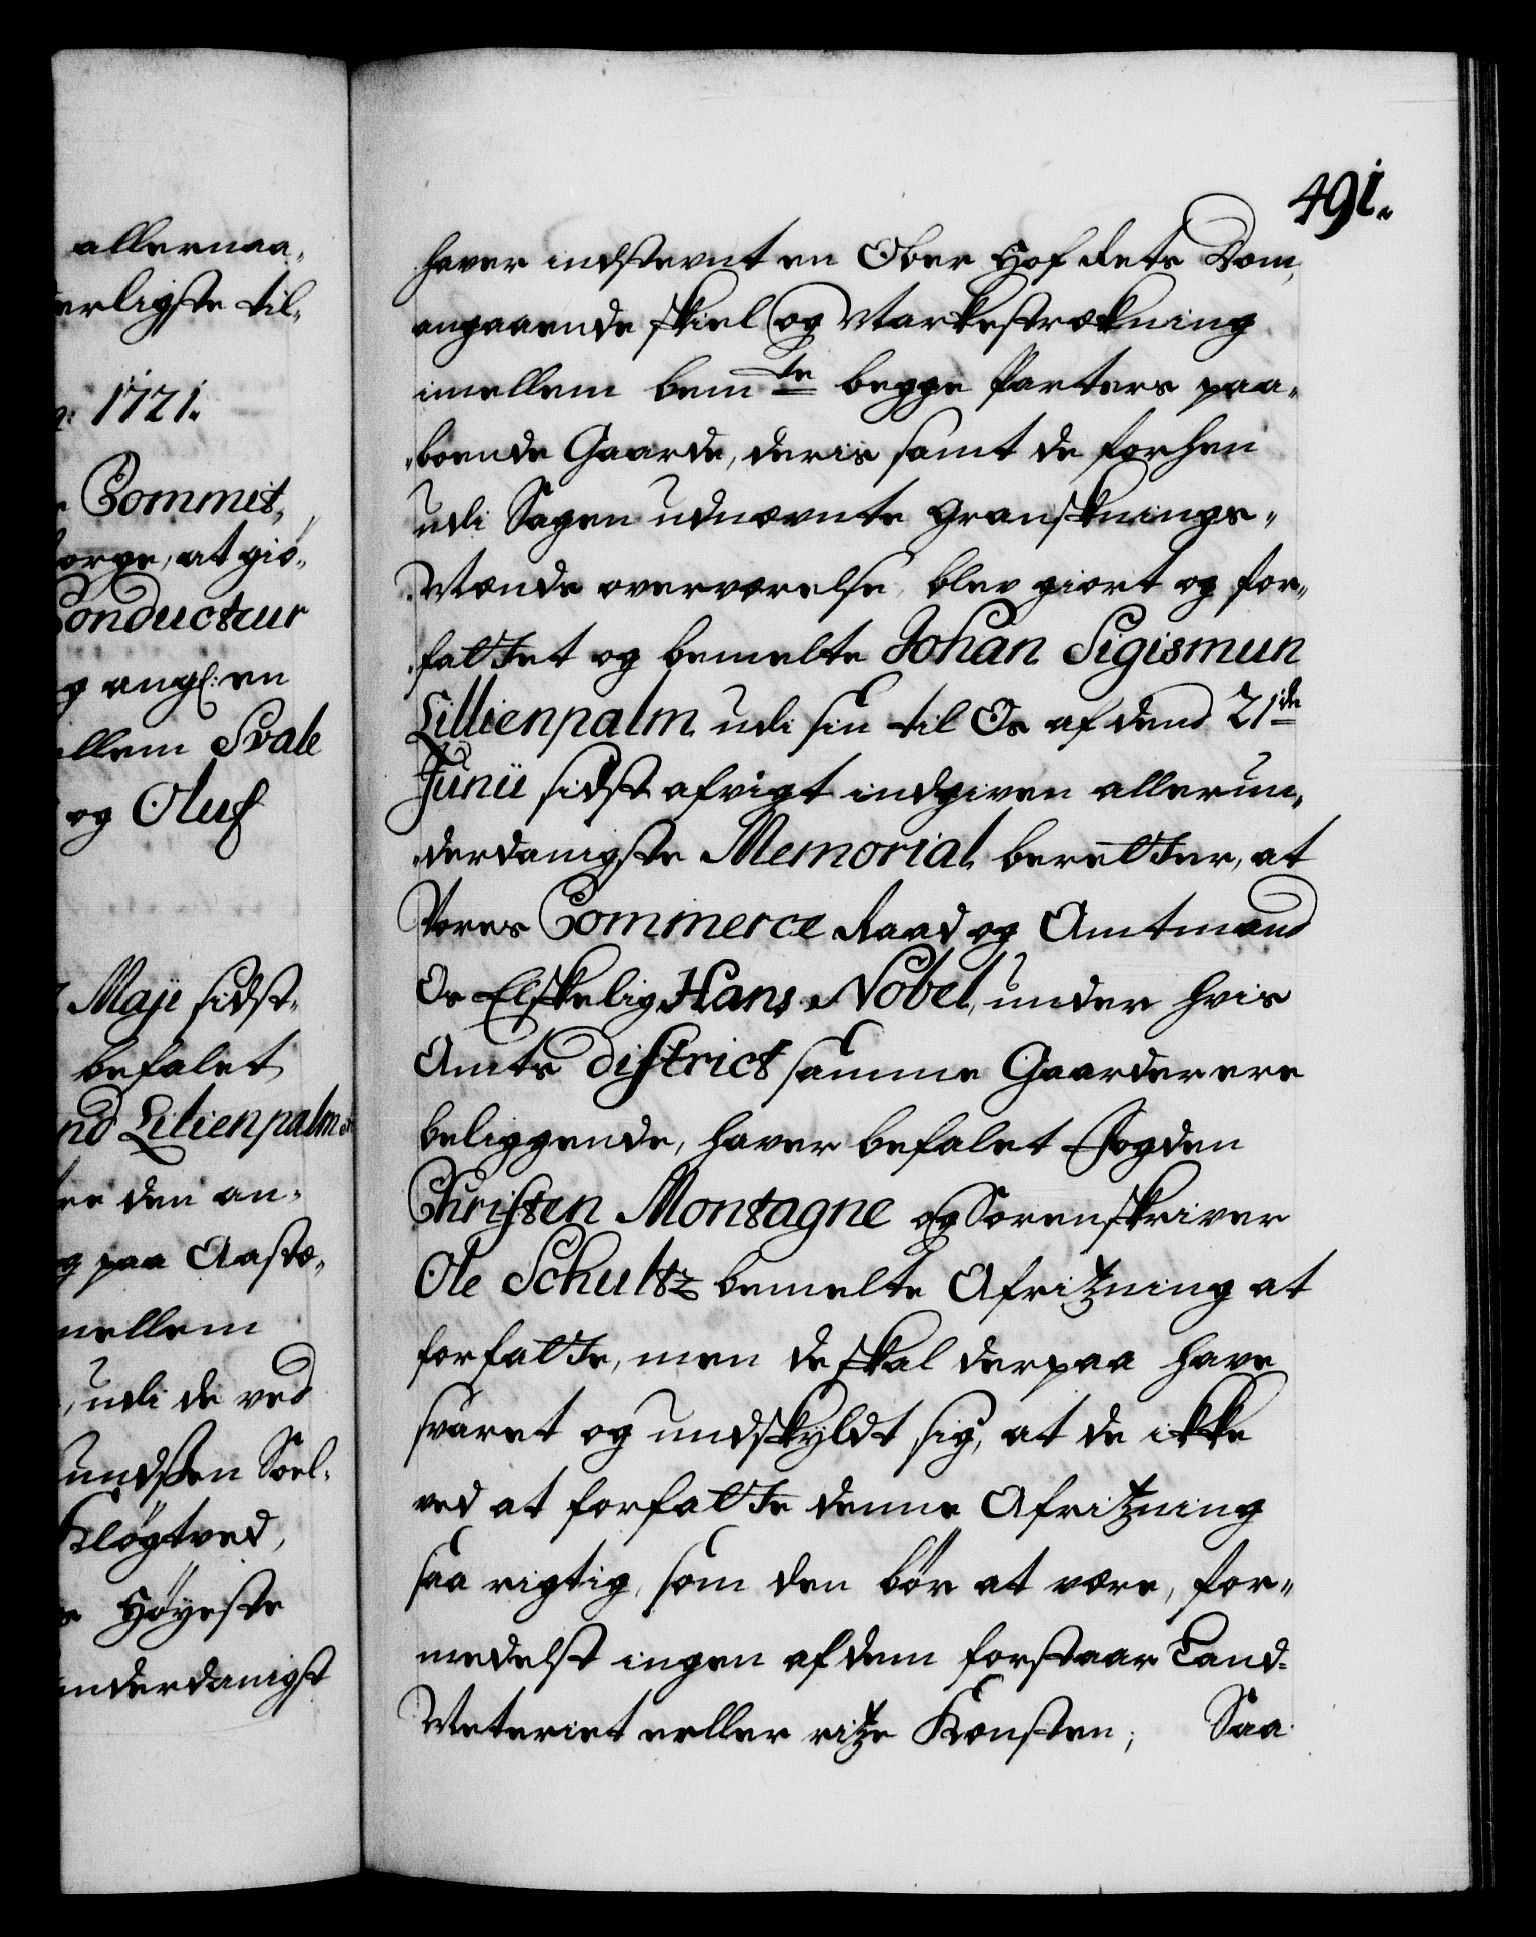 allernaa-
erligste til-
1721.
Commis-
orge, at giö-
Conducteur
og angl: en
ellem Svale
og Oluf
Maji sidst-
befalet
nd Lilienpalm
den an-
og paa Aastæ-
mellem
, udi de ved
undsen Soel-
Kløgtved,
Høyeste
underdanigst
491.
haver indstevnt en Ober Hof Rets Dom,
angaaende skiel og Markestrækning
imellem bemte begge Parters paa-
boende Gaarde, deris samt de forhen
udi Sagen udnævnte Gransknings-
Mænds overværelse, blev giort og for-
fattet og bemelte Johan Sigismun
Lillienpalm udi sin til Os af dend 21de
Junii sidst afvigt indgiven allerun-
derdanigste Memorial beretter, at
Vores Commerce Raad og Amtmand
Os Elskelig Hans Nobel, under hvis
Amts District samme Gaarder ere
beliggende, haver befalet Fogden
Christen Montagne og Sorenskriver
Ole Schultz bemelte Afritzning at
forfatte, men de skal derpaa have
svaret og undskyldt sig, at de ikke
ved at forfatte denne Afritzning
saa rigtig, som den bör at være, for-
medelst ingen af dem forstaar Land-
Meteriet eller ritze Konsten; Saa